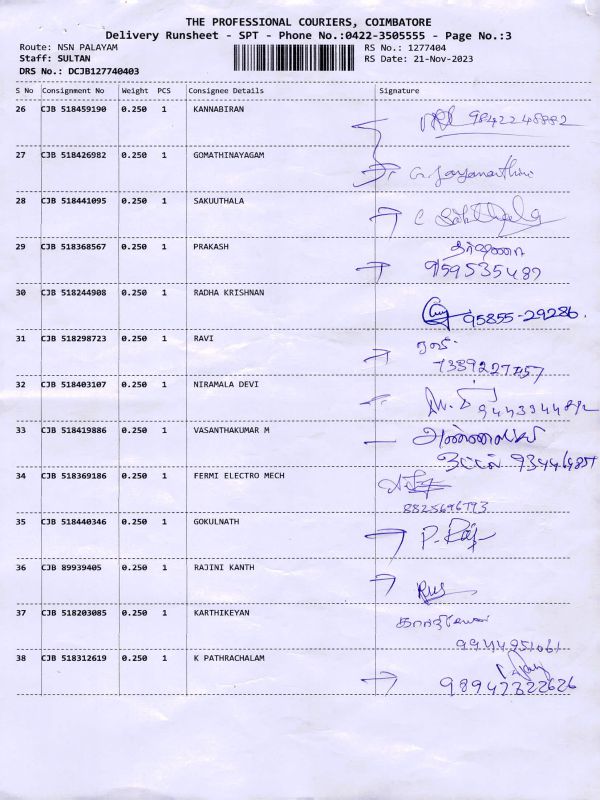 THE PROFESSIONAL COURIERS, COIMBATORE
Delivery Runsheet - SPT - Phone No.:0422-3505555 - Page No.:3
Route: NSN PALAYAM RS No.: 1277404
Staff: SULTAN RS Date: 21-Nov-2023
DRS No.: DCJB127740403
S No Consignment No Weight PCS Consignee Details Signature
26 CJB 518459190 0.250 1 KANNABIRAN 9842248882
27 CJB 518426982 0.250 1 GOMATHINAYAGAM
28 CJB 518441095 0.250 1 SAKUUTHALA
29 CJB 518368567 0.250 1 PRAKASH
959535487
30 CJB 518244908 0.250 1 RADHA KRISHNAN 95855-29286.
31 CJB 518298723 0.250 1 RAVI ரவி
7339227457
32 CJB 518403107 0.250 1 NIRAMALA DEVI
33 CJB 518419886 0.250 1 VASANTHAKUMAR M
34 CJB 518369186 0.250 1 FERMI ELECTRO MECH
8825696773
35 CJB 518440346 0.250 1 GOKULNATH
36 CJB 89939405 0.250 1 RAJINI KANTH
37 CJB 518203085 0.250 1 KARTHIKEYAN
9944951061
38 CJB 518312619 0.250 1 K PATHRACHALAM
98947322626